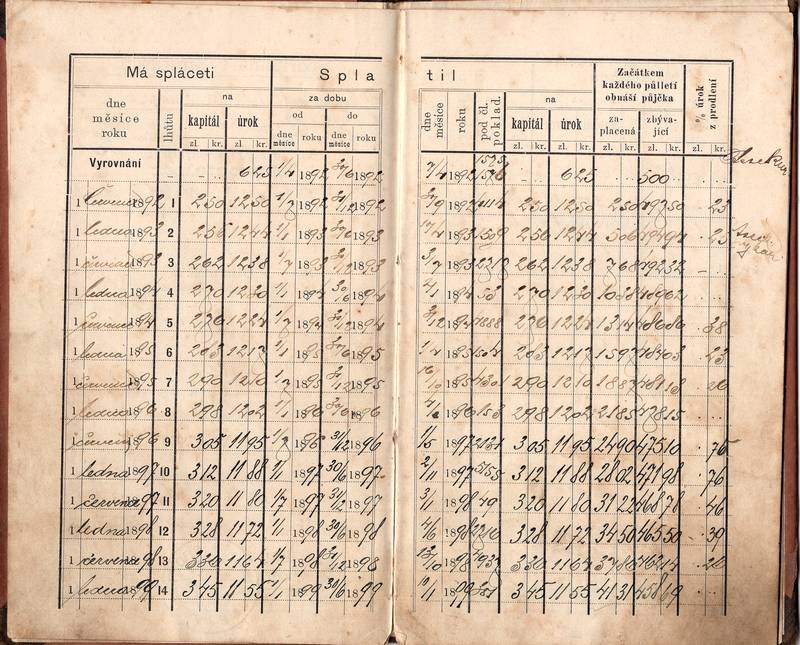 Má spláceti
Spla til
Začátkem každého půlletí obnáší půjčka
% úrok z prodlení
dne měsíce roku
lhůtu
na
za dobu
dne měsíce
roku
pod čl. poklad.
na
kapitál
úrok
od
do
kapitál
úrok
za- placená
zbýva- jící
zl. kr. zl. kr. dne měsíce roku dne měsíce roku zl. kr. zl. kr. zl. kr. zl. kr. zl. kr.
Vyrovnání 6 25 1/4 1892 30/6 1892 7/4 1892 6 25 500
1 července 1892 1 2 50 12 50 1/7 1892 31/12 1892 1892 2 50 12 50 2 50 497 50 23
1 ledna 1893 2 2 56 12 44 1/1 1893 30/6 1893 17/4 1893 1509 2 56 12 44 5 06 494 94 25
1 července 1893 3 2 62 12 38 1/7 1893 31/12 1893 3/7 1893 2 62 12 38 7 68 492 32
1 ledna 1894 4 2 70 12 30 1/1 1894 30/6 1894 4/1 1894 53 2 70 12 30 10 38 489 62
1 července 1894 5 2 76 12 24 1/7 1894 31/12 1894 1894 2 76 12 24 13 14 486 86 38
1 ledna 1895 6 2 83 12 17 1/1 1895 30/6 1895 1895 2 83 12 17 15 97 484 03 23
1 července 1895 7 2 90 12 10 1/7 1895 31/12 1895 16/10 1895 4301 2 90 12 10 18 87 481 13 26
1 ledna 1896 8 2 98 12 02 1/1 1896 30/6 1896 4/1 1896 153 2 98 12 02 21 85 478 15
1 července 1896 9 3 05 11 95 1/7 1896 31/12 1896 1/5 1897 2131 3 05 11 95 24 90 475 10 75
1 ledna 1897 10 3 12 11 88 1/1 1897 30/6 1897 2/11 1897 5155 3 12 11 88 28 02 471 98 76
1 července 1897 11 3 20 11 80 1/7 1897 31/12 1897 3/1 1898 49 3 20 11 80 31 22 468 78 46
1 ledna 1898 12 3 28 11 72 1/1 1898 30/6 1898 4/6 1898 3 28 11 72 34 50 465 50 39
1 července 1898 13 3 36 11 64 1/7 1898 31/12 1898 1898 4937 3 36 11 64 37 86 462 14 26
1 ledna 1899 14 3 45 11 55 1/1 1899 30/6 1899 10/1 1899 3 45 11 55 41 31 458 69